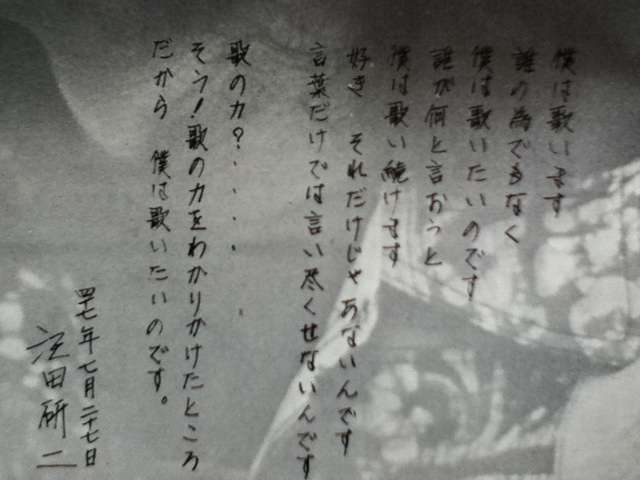 僕は歌います
誰の為でもなく
僕は歌いたいのです
誰が何と言おうと
僕は歌い続けます
好き それだけじゃあないんです
言葉だけでは言い尽くせないんです
歌の力?・・・・・
そう!歌の力をわかりかけたところ
だから 僕は歌いたいのです。
四七年七月二十七日
沢田研二